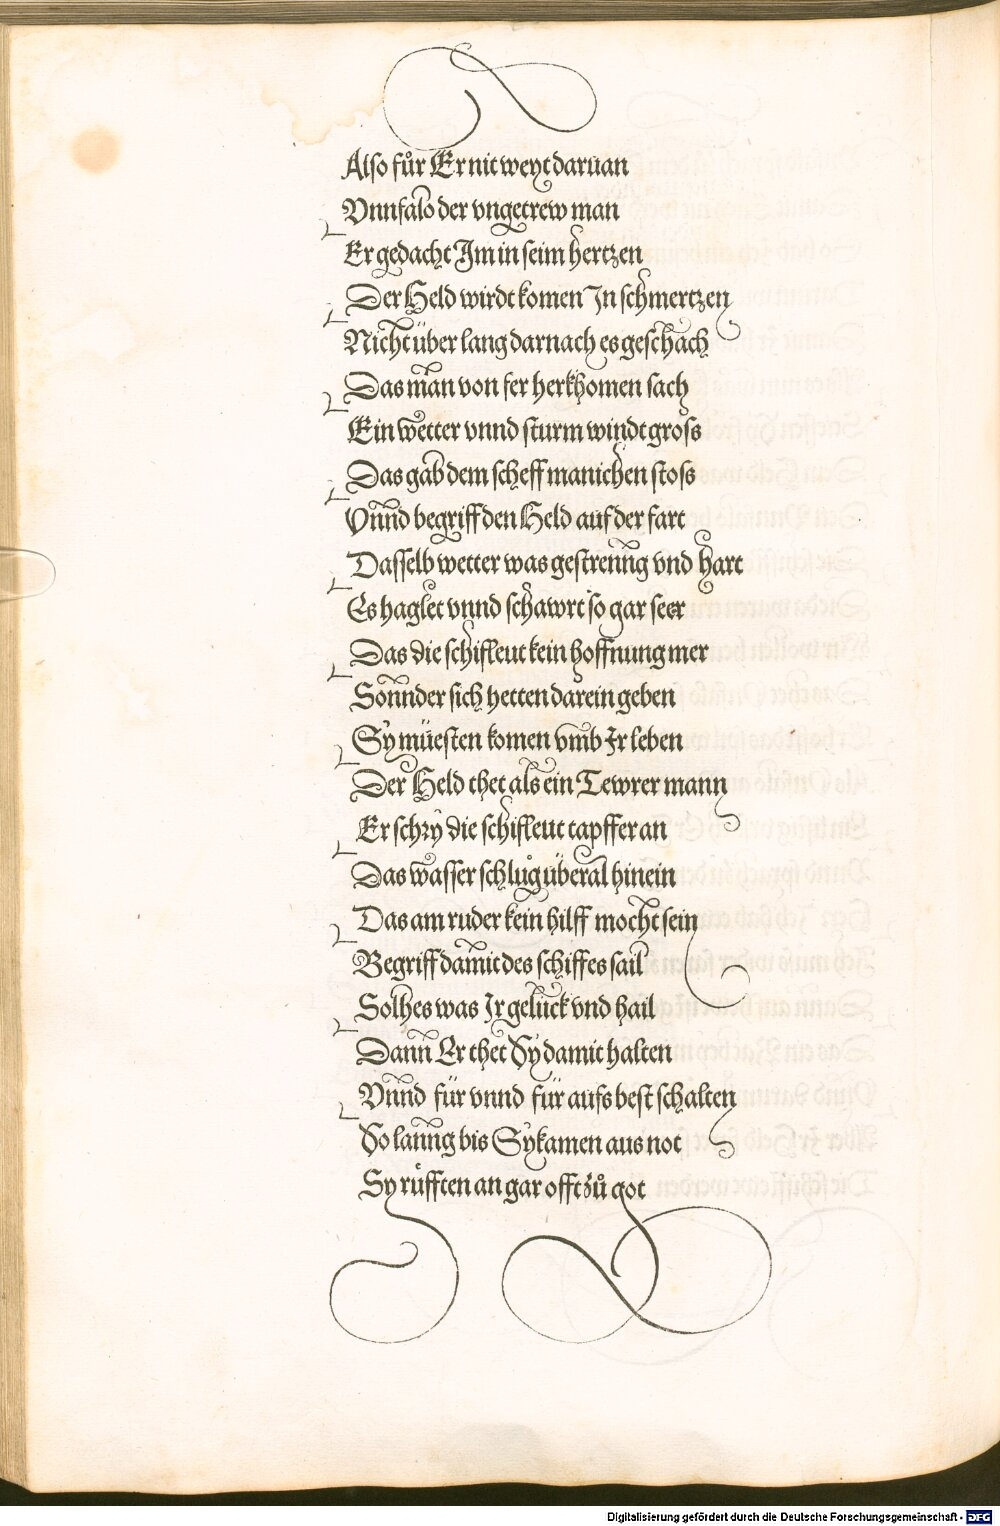 Also für Er nit weyt daruan
Vnnfalo der vngetrew man
Er gedacht Im in seim hertzen
Der Held wirdt komen In schmertzen
Nicht über lang darnach es geschach
Das man von fer herkhomen sach
Ein wetter vnnd sturm windt gross
Das gab dem scheff manichen stoss
Vnnd begriff den Held auf der fart
Dasselb wetter was gestrenng vnd hart
Es haglet vnnd schawrt so gar seer
Das die schifleut kein hoffnung mer
Sonnder sich hetten darein geben
Sy müesten komen vmb Ir leben
Der Held thet als ein Tewrer mann
Er schry die schifleut tapffer an
Das wasser schlůg überal hinein
Das am ruder kein hilff mocht sein
Begriff damit des schiffes sail
Solhes was Ir gelück vnd hail
Dann Er thet Sy damit halten
Vnnd für vnnd für aufs best schalten
So lanng bis Sy kamen aus not
Sy rüfften an gar offt zů got
Digitalisierung gefördert durch die Deutsche Forschungsgemeinschaft - DFG